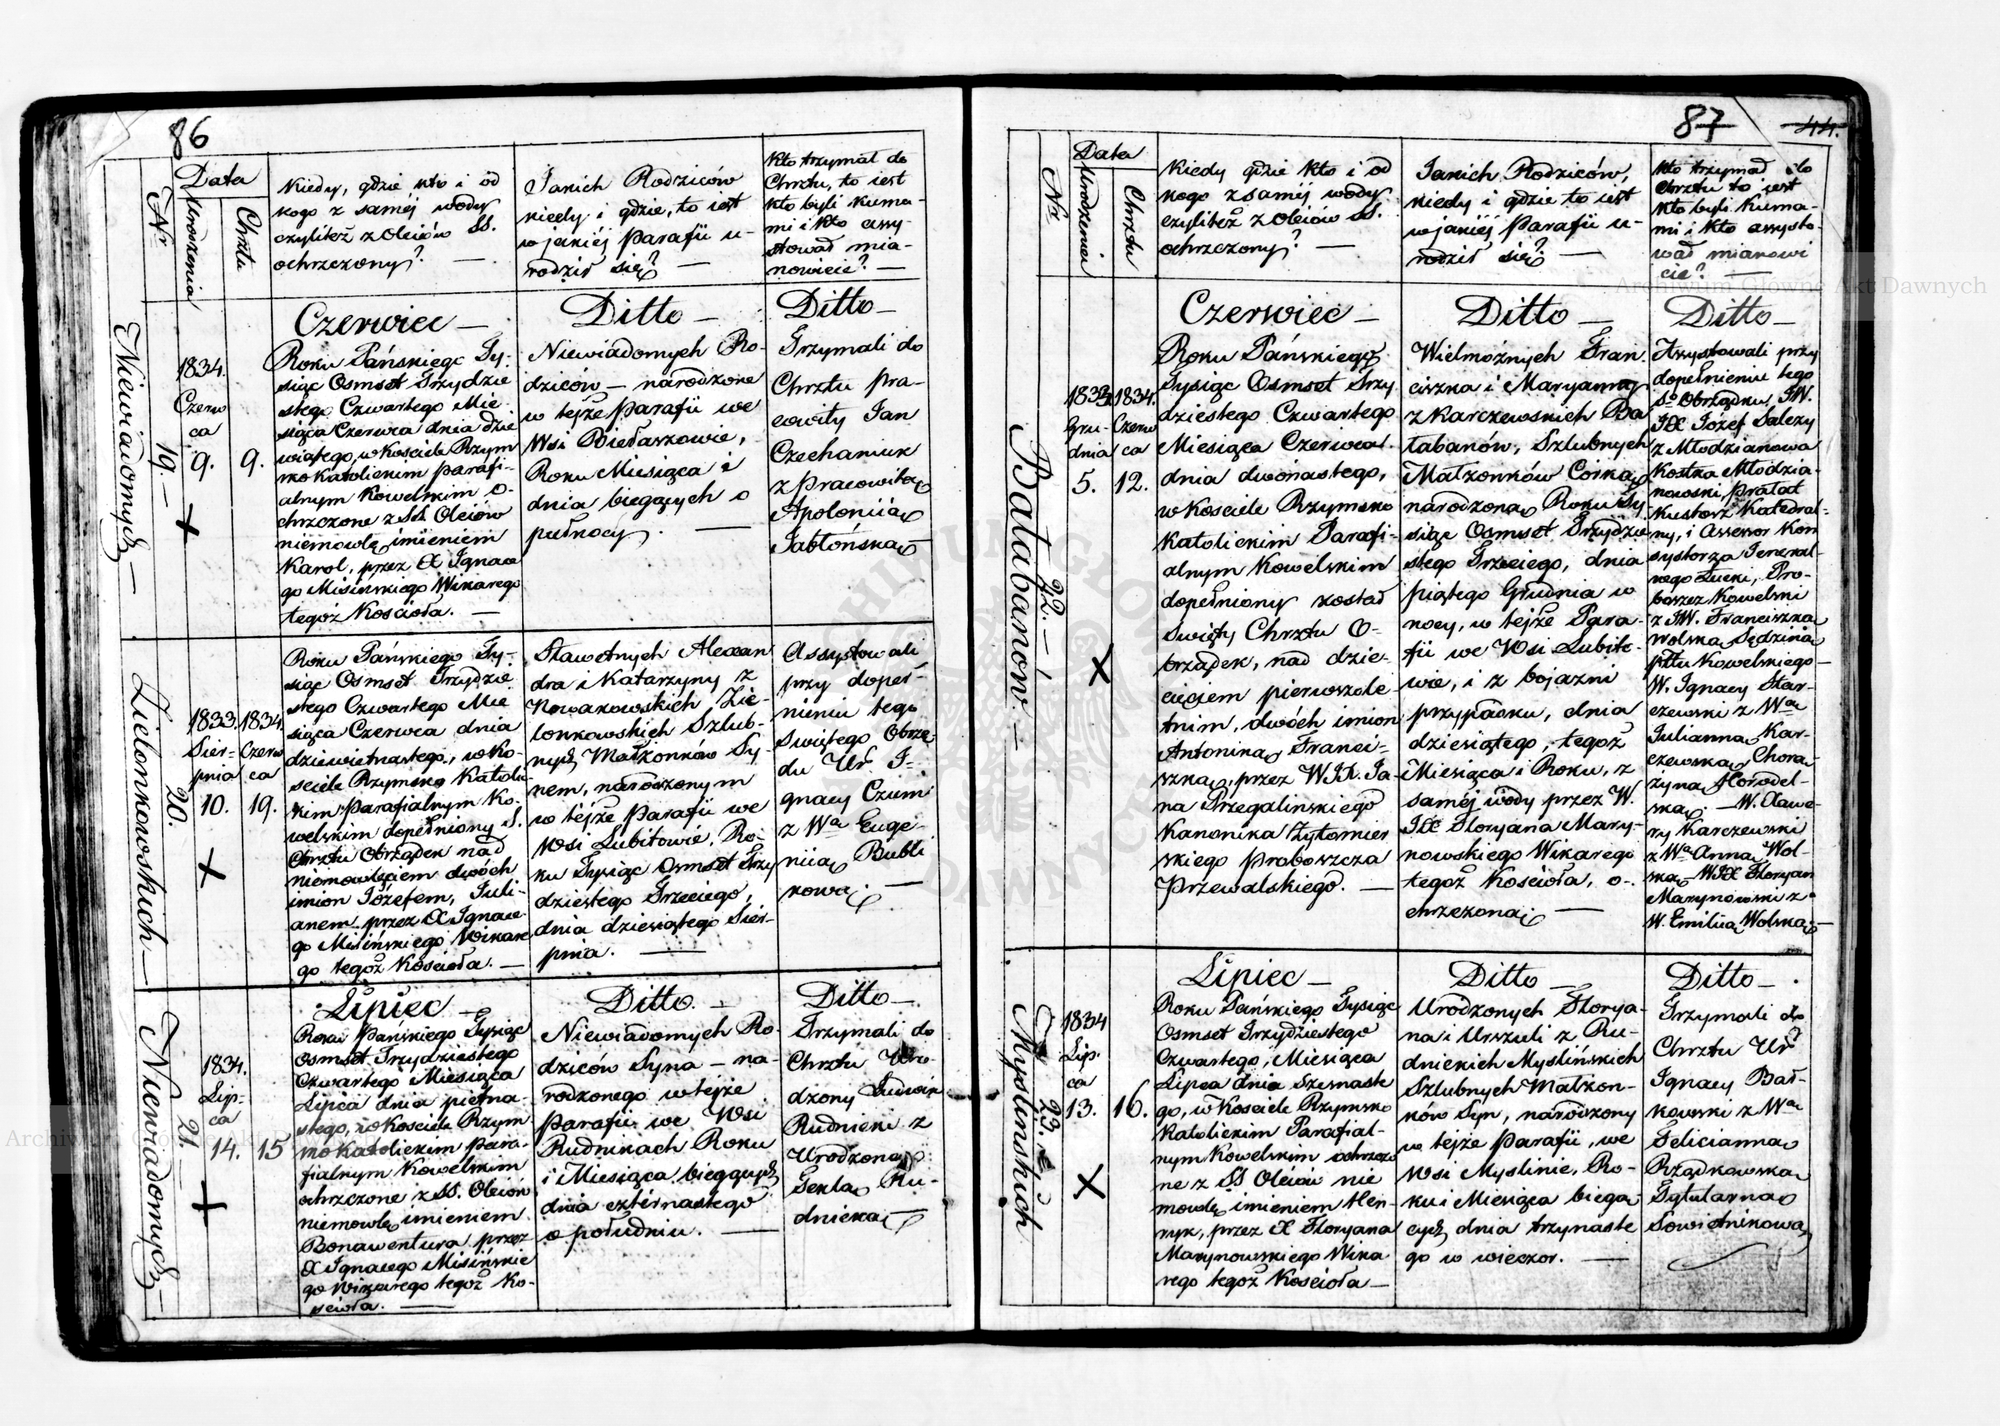 86
Nr
Data
Urodzenia
Chrztu
Kiedy, gdzie kto i od
kogo z samej wody
czyliteż z Oleiów SS.
ochrzczony? —
Jakich Rodziców
kiedy i gdzie, to iest
w jakiéj Parafii u-
rodził się? —
Kto trzymał do
Chrztu, to iest
kto byli kuma-
mi i kto assy
stował mia-
nowicie? —
Niewiadomych —
19. —
1834.
Czerw
ca
9.
9.
Czerwiec —
Roku Pańskiego Ty-
siąc Osmset Trzydzie
stego Czwartego Mie-
siąca Czerwca dnia dzie
wiątego, w Kościele Rzym
sko Katolickim Parafi-
alnym Kowelskim o-
chrzczone z SS. Oleiów
niemowlę imieniem
Karol, przez X Ignace
go Misińskiego Wikarego
tegoż Kościoła. —
Ditto —
Niewiadomych Ro-
dziców — narodzone
w tejże Parafii we
Wsi Bielaszowie,
Roku Miesiąca i
dnia bieżących o
pułnocy. —
Ditto —
Trzymali do
Chrztu Pra-
cowity Jan
Czechaniuk
z Pracowitą
Apolonią
Jabłońską —
Zielonkowskich —
20.
1833.
Sier-
pnia
10.
1834.
Czerw
ca
19.
Roku Pańskiego Ty-
siąc Osmset Trzydzie
stego Czwartego Mie
siąca Czerwca dnia
dziewietnastego, w Ko-
ściele Rzymsko Katolic-
kim Parafialnym Ko-
welskim dopełniony S.
Chrztu Obrządek nad
niemowlęciem dwóch
imion Józefem, Juli-
anem przez X Ignace-
go Misińskiego Wikare
go tegoż Kościoła. —
Sławetnych Alexan
dra i Katarzyny z
Nowakowskich Zie-
lonkowskich Szlub-
nych Małżonków Sy-
nem, narodzonym
w tejże Parafii we
Wsi Lubitowie, Ro-
ku Tysiąc Osmset Trzy
dziestego Trzeciego,
dnia dziesiątego Sier-
pnia. —
Assystowali
przy dopeł-
nieniu tego
Swiętego Obrzę-
du Ur. I-
gnacy Czumi
z Wą Euge-
nią Bubli
kową. —
Niewiadomych —
21. —
1834.
Lip-
ca
14.
15
Lipiec —
Roku Pańskiego Tysiąc
Osmset Trzydziestego
Czwartego Miesiąca
Lipca dnia pietna-
stego, w Kościele Rzym
sko Katolickim Para-
fialnym Kowelskim
ochrzczone z SS. Oleiów
niemowlę imieniem
Bonawentura przez
X Ignacego Misińskie
go Wikarego tegoż Ko-
ścioła. —
Ditto. —
Niewiadomych Ro-
dziców Syna — na-
rodzonego w tejże
Parafii we Wsi
Rudnikach Roku
i Miesiąca bieżących
dnia czternastego
o południu. —
Ditto —
Trzymali do
Chrztu Uro-
dzony Ludwik
Rudnicki z
Urodzoną
Teklą Ru-
dnicką —
87
44.
Nr
Data
Urodzenia
Chrztu
Kiedy gdzie kto i od
kogo z samej wody
czyliteż z Oleiów SS.
ochrzczony? —
Jakich Rodziców,
kiedy i gdzie to iest
w jakiéj Parafii u-
rodził się? —
Kto trzymał do
Chrztu to iest
kto byli Kuma-
mi i kto assysto-
wał mianowi
cie? —
Bałabanów —
22. —
1833.
Gru-
dnia
5.
1834.
Czerw
ca
12.
Czerwiec —
Roku Pańskiego
Tysiąc Osmset Trzy
dziestego Czwartego
Miesiąca Czerwca
dnia dwónastego,
w Kościele Rzymsko
Katolickim Parafi-
alnym Kowelskim
dopełniony został
Swięty Chrztu O-
brządek, nad dzie-
cięciem pierwszole
tnim, dwóch imion
Antonina, Franci-
szka, przez WJX. Ja-
na Przegalińskiego
Kanonika Żytomier
skiego Proboszcza
Przewalskiego. —
Ditto —
Wielmożnych Fran
ciszka i Maryanny
z Karczewskich Ba
łabanów, Szlubnych
Małżonków Córką
narodzoną Roku Ty-
siąc Osmset Trzydzie
stego Trzeciego, dnia
piątego Grudnia w
nocy, w tejże Para-
fii we Wsi Lubito-
wie, i z bojaźni
przypadku, dnia
dziesiątego, tegoż
Miesiąca i Roku, z
samej wody przez W.
JX Floryana Mary-
nowskiego Wikarego
tegoż Kościoła, o-
chrzczoną. —
Ditto —
Assystowali przy
dopełnieniu tego
So Obrządku, JW.
JX Józef Salezy
z Młodzianowa
Kostka Młodzia-
nowski, Prałat
Kustosz Katedral-
ny, i Assesor Kon
systorza Jeneral-
nego Łucki, Pro-
boszcz Kowelski
z JW. Franciszką
Wolską Sędziną
Pttu Kowelskiego —
W. Ignacy Kar-
czewski z Wą
Julianną Kar-
czewską Chora-
żyną Horodel-
ską. — W. Xawe-
ry Karczewski
z Wą Anną Wol-
ską — WJX Floryan
Marynowski z
W. Emilią Wolską —
Myslińskich
23.
1834
Lip-
ca
13.
16.
Lipiec —
Roku Pańskiego Tysiąc
Osmset Trzydziestego
Czwartego, Miesiąca
Lipca dnia szesnaste
go, w Kościele Rzymsko
Katolickim Parafial-
nym Kowelskim ochrzczo
ne z SS Oleiów nie
mowlę imieniem Hen-
ryk, przez X Floryana
Marynowskiego Wika
rego tegoż Kościoła —
Ditto —
Urodzonych Florya-
na i Urszuli z Ru-
dnickich Myslińskich
Szlubnych Małżon-
ków Syn, narodzony
w tejże Parafii, we
Wsi Myslinie, Ro-
ku i Miesiąca bieżą
cych, dnia trzynaste
go w wieczor. —
Ditto —
Trzymali do
Chrztu Ur.
Ignacy Bał-
kowski z Wą
Felicianną
Rządkowską
Tytularną
Sowietnikową
Archiwum Główne Akt Dawnych
Archiwum Główne Akt Dawnych
ARCHIWUM GŁÓWNE AKT DAWNYCH